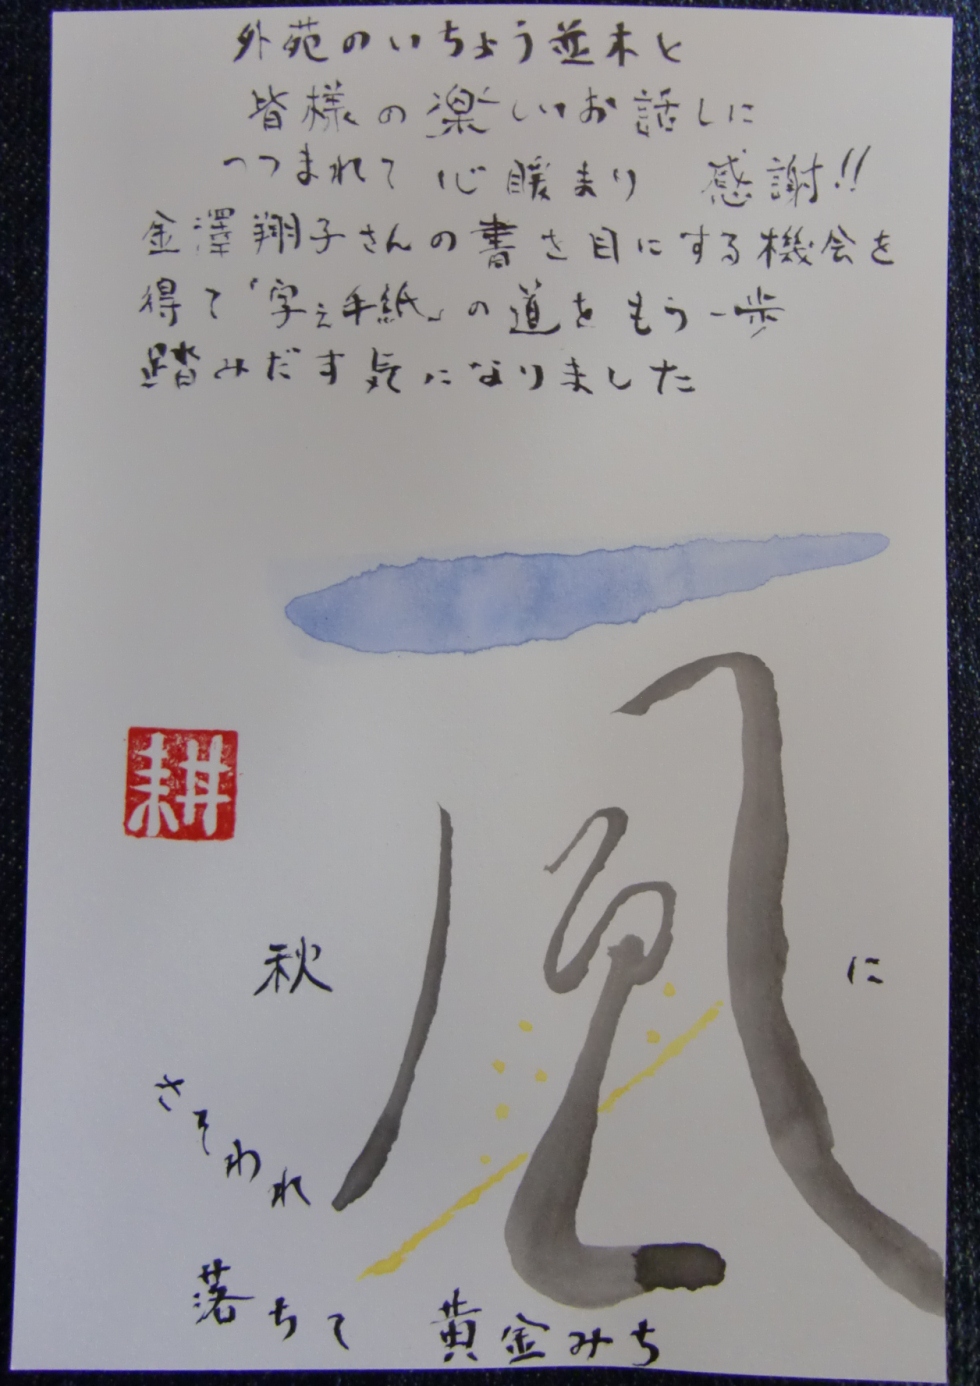 外苑のいちょう並木と
皆様の楽しいお話しに
つつまれて心暖まり 感謝!!
金澤翔子さんの書を目にする機会を
得て「字え手紙」の道をもう一歩
踏みだす気になりました
耕
秋風に
さそわれ
落ちて 黄金みち